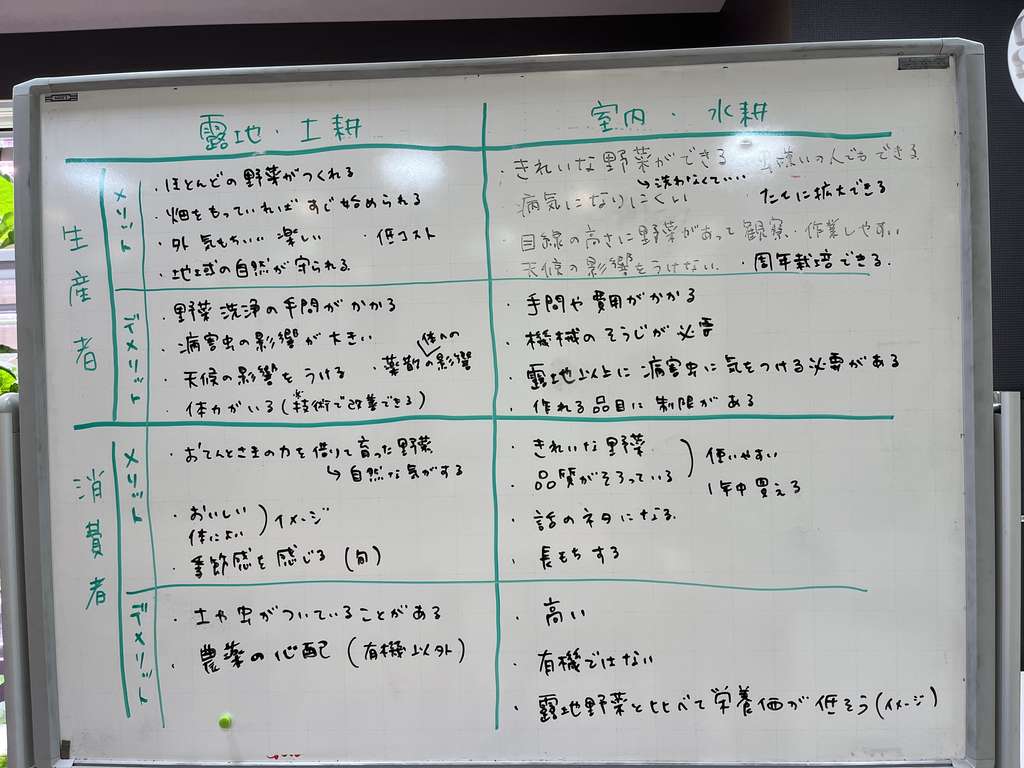 露地・土耕
室内・水耕
生産者
メリット
・ほとんどの野菜がつくれる
・畑をもっていればすぐ始められる
・外 気もちいい 楽しい ・低コスト
・地域の自然が守られる
・きれいな野菜ができる ・虫嫌いの人でもできる
→洗わなくていい
病気になりにくい
たてに拡大できる
・目線の高さに野菜があって観察・作業しやすい
天候の影響をうけない ・周年栽培できる
デメリット
・野菜洗浄の手間がかかる
・病害虫の影響が大きい
体への
・天候の影響をうける ・薬散の影響
・体力がいる(※技術で改善できる)
・手間や費用がかかる
・機械のそうじが必要
・露地以上に病害虫に気をつける必要がある
・作れる品目に制限がある
消費者
メリット
・おてんとさまの力を借りて育った野菜
→自然な気がする
・おいしい
体によい
)イメージ
・季節感を感じる(旬)
・きれいな野菜
・品質がそろっている
)使いやすい
1年中買える
・話のネタになる
・長もちする
デメリット
・土や虫がついていることがある
・農薬の心配(有機以外)
・高い
・有機ではない
・露地野菜と比べて栄養価が低そう(イメージ)